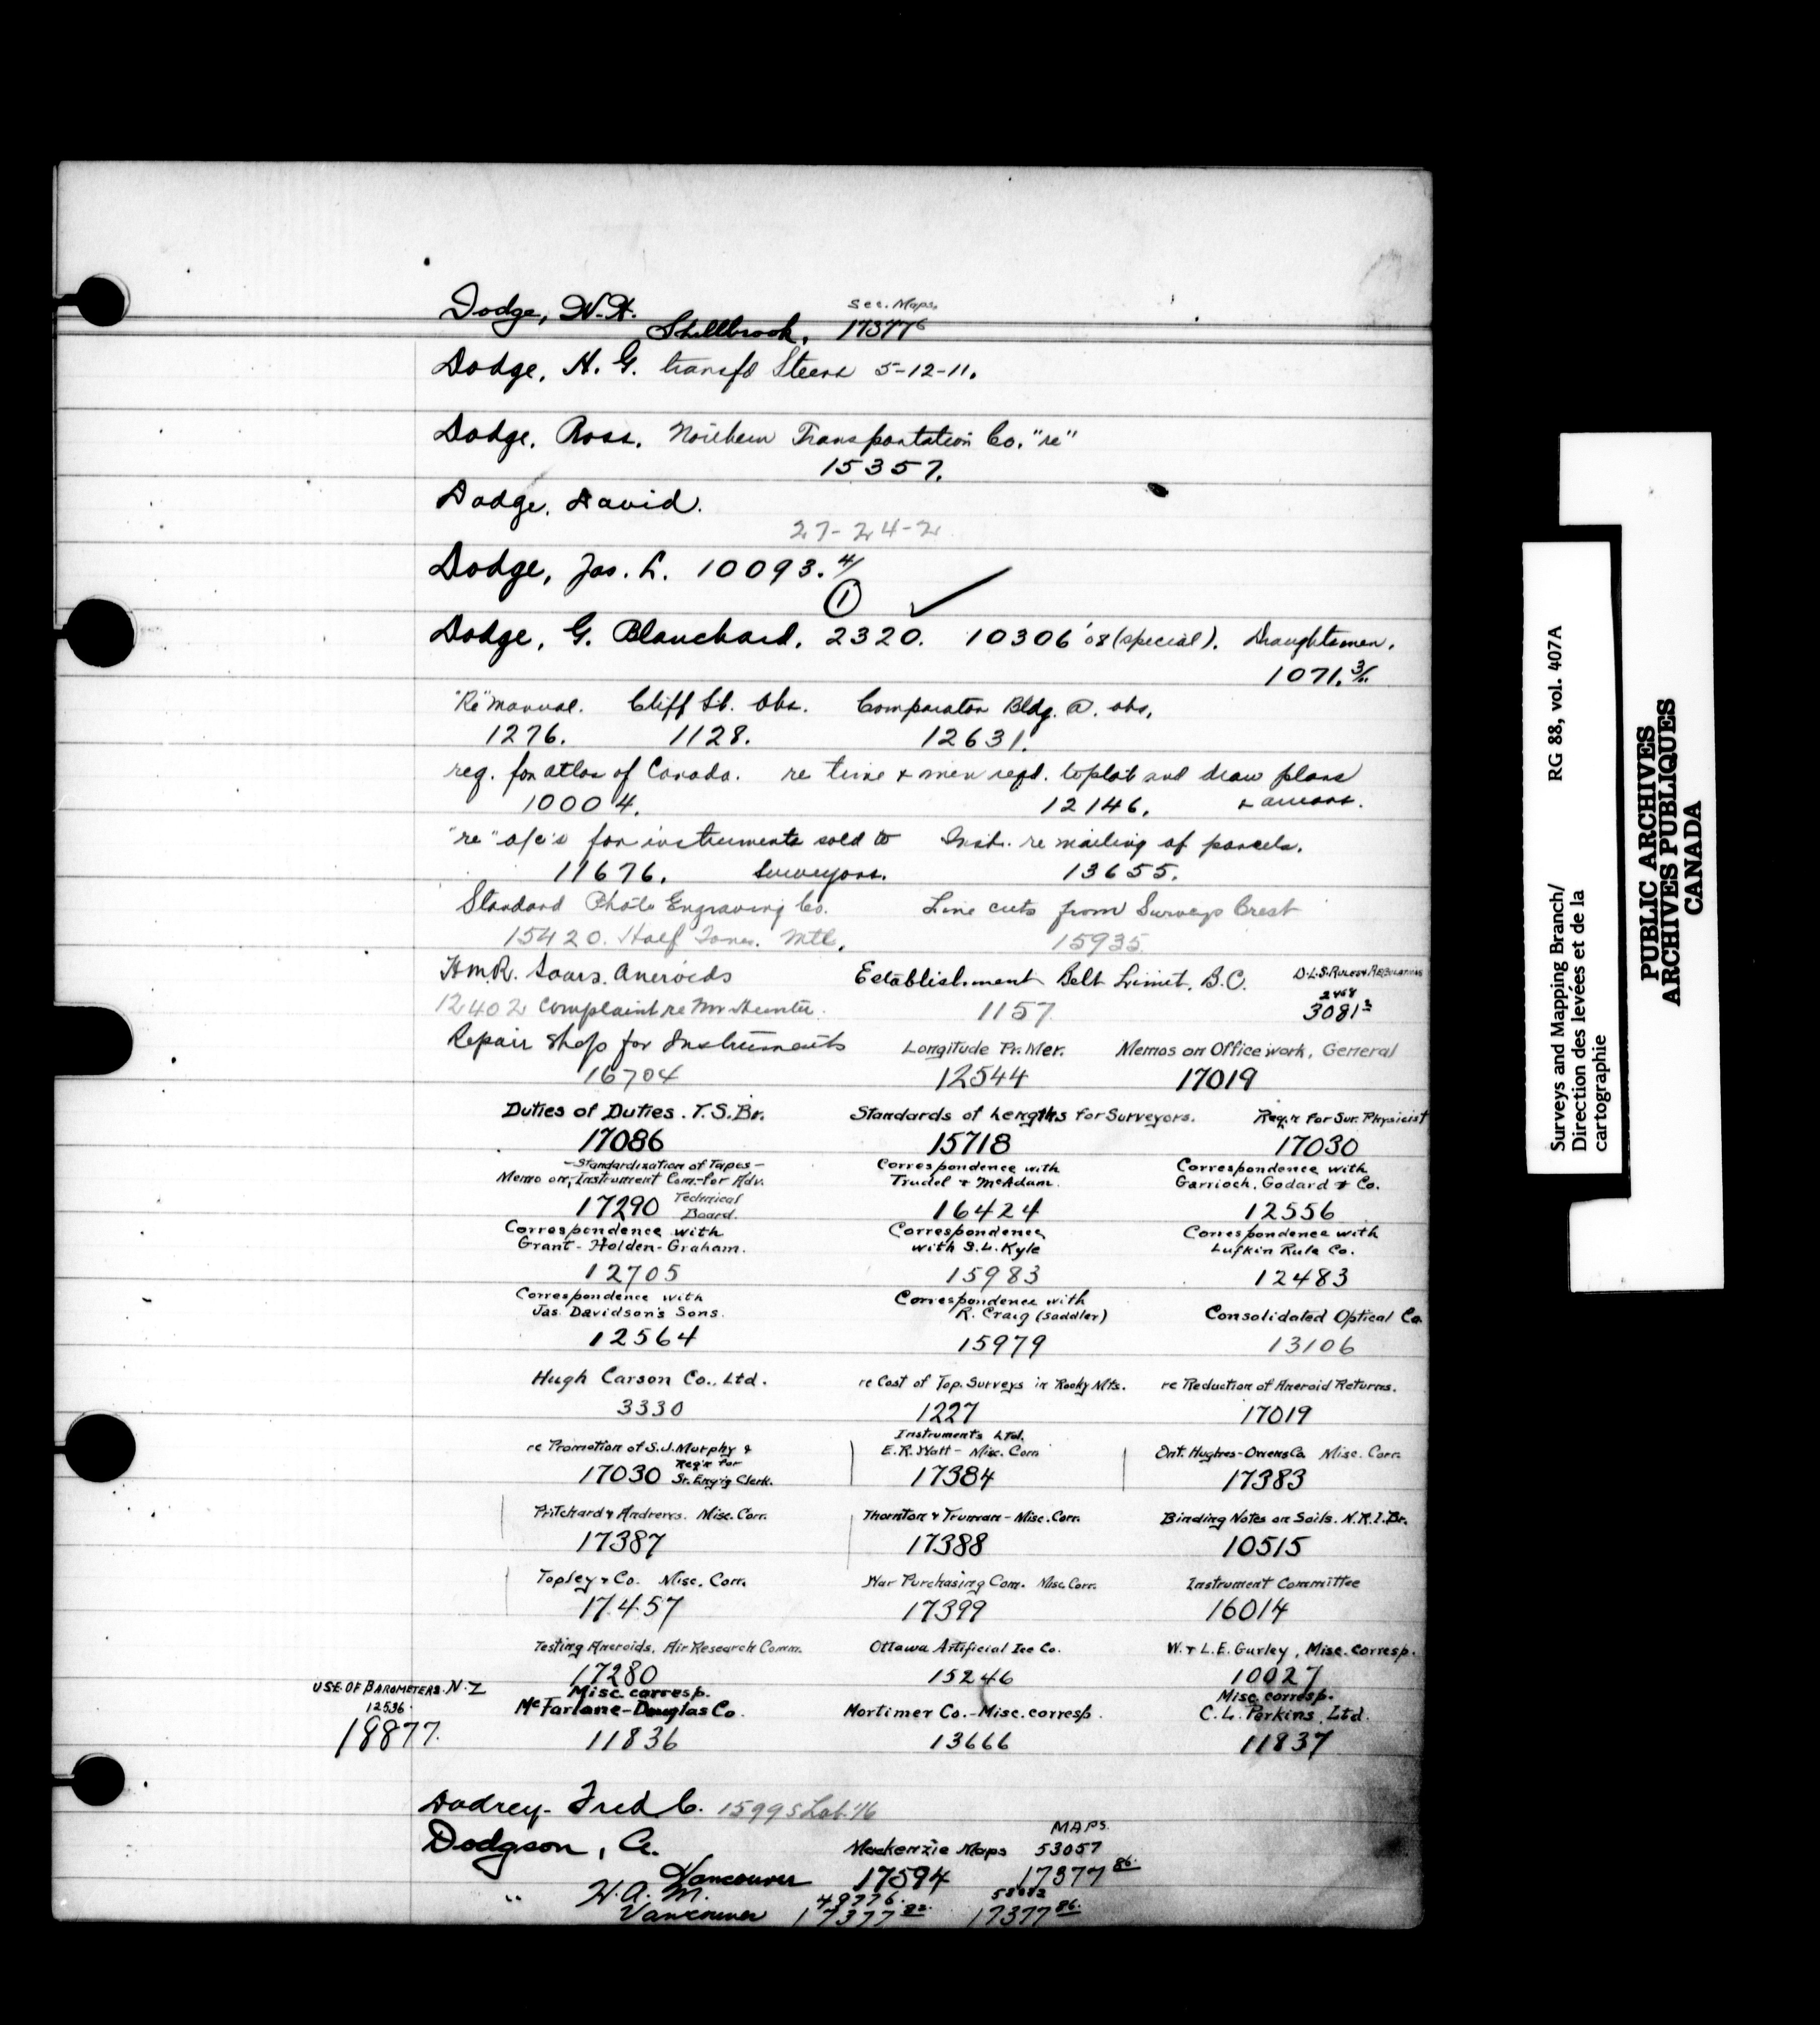 Dodge, W. H. Sec. Maps
Shellbrook, 17377⁶
Dodge, H. G. transfd Steens 5-12-11.
Dodge, Ross. Northern Transportation Co. "re"
15357.
Dodge, David.
27-24-2
Dodge, Jas. L. 10093. 4/
① ✓
Dodge, G. Blanchard. 2320. 10306 '08 (special). Draughtsmen.
1071.
"Re" manual. Cliff St. Obs. Comparator Bldg. @. obs.
1276. 1128. 12631.
req. for atlas of Canada. re time & men reqd. to plot and draw plans
10004. 12146.
"re" a/c's for instruments sold to Inst. re mailing of parcels.
11676. Surveyors. 13655.
Standard Photo Engraving Co. Line cuts from Surveys Crest
15420. Half Tones. Mtl. 15935
Aneroids Establishment Belt Limit, B.C. D.L.S. Rules & Regulations
12402 Complaint re Mr Hunter. 1157 2458
3081³
Repair Shop for Instruments Longitude Pr. Mer. Memos on Office work, General
16704 12544 17019
Duties of Duties. T.S. Br. Standards of Lengths for Surveyors. Req'n for Sur. Physicist
17086 15718 17030
—Standardization of Tapes— Correspondence with Correspondence with
Memo on, Instrument Com. for Adv. Trudel & McAdam. Garrioch, Godard & Co.
17290 Technical Board. 16424 12556
Correspondence with Correspondence Correspondence with
Grant-Holden-Graham. with S.L. Kyle Lufkin Rule Co.
12705 15983 12483
Correspondence with Correspondence with
Jas. Davidson's Sons. R. Craig (saddler) Consolidated Optical Co
12564 15979 13106
Hugh Carson Co., Ltd. re Cost of Top. Surveys in Rocky Mts. re Reduction of Aneroid Returns.
3330 1227 17019
Instruments Ltd.
re Promotion of S.J. Murphy & E.R. Watt - Misc. Corr Ont. Hughes-Owens Co. Misc. Corr.
17030 Req'n for Sr. Eng'g Clerk. 17384 17383
Pritchard & Andrews. Misc. Corr. Thornton & Truman - Misc. Corr. Binding Notes on Soils. N.R.I. Br.
17387 17388 10515
Topley & Co. Misc. Corr. War Purchasing Com. Misc. Corr. Instrument Committee
17457 17399 16014
Testing Aneroids, Air Research Comm. Ottawa Artificial Ice Co. W. & L.E. Gurley, Misc. corresp.
17280 15246 10027
USE OF BAROMETERS. N.Z Misc. corresp. Misc. corresp.
12536. McFarlane-Douglas Co. Mortimer Co. - Misc. corresp. C.L. Perkins, Ltd.
18877. 11836 13666 11837
Dodrey- Fred C. 15995
MAPS.
Dodgson, C. Mackenzie Maps 53057
Vancouver 17594 17377 86.
" H.A.M. 49776.
Vancouver 17377 82. 17377 86.
Surveys and Mapping Branch/ RG 88, vol. 407A
Direction des levées et de la
cartographie
PUBLIC ARCHIVES
ARCHIVES PUBLIQUES
CANADA